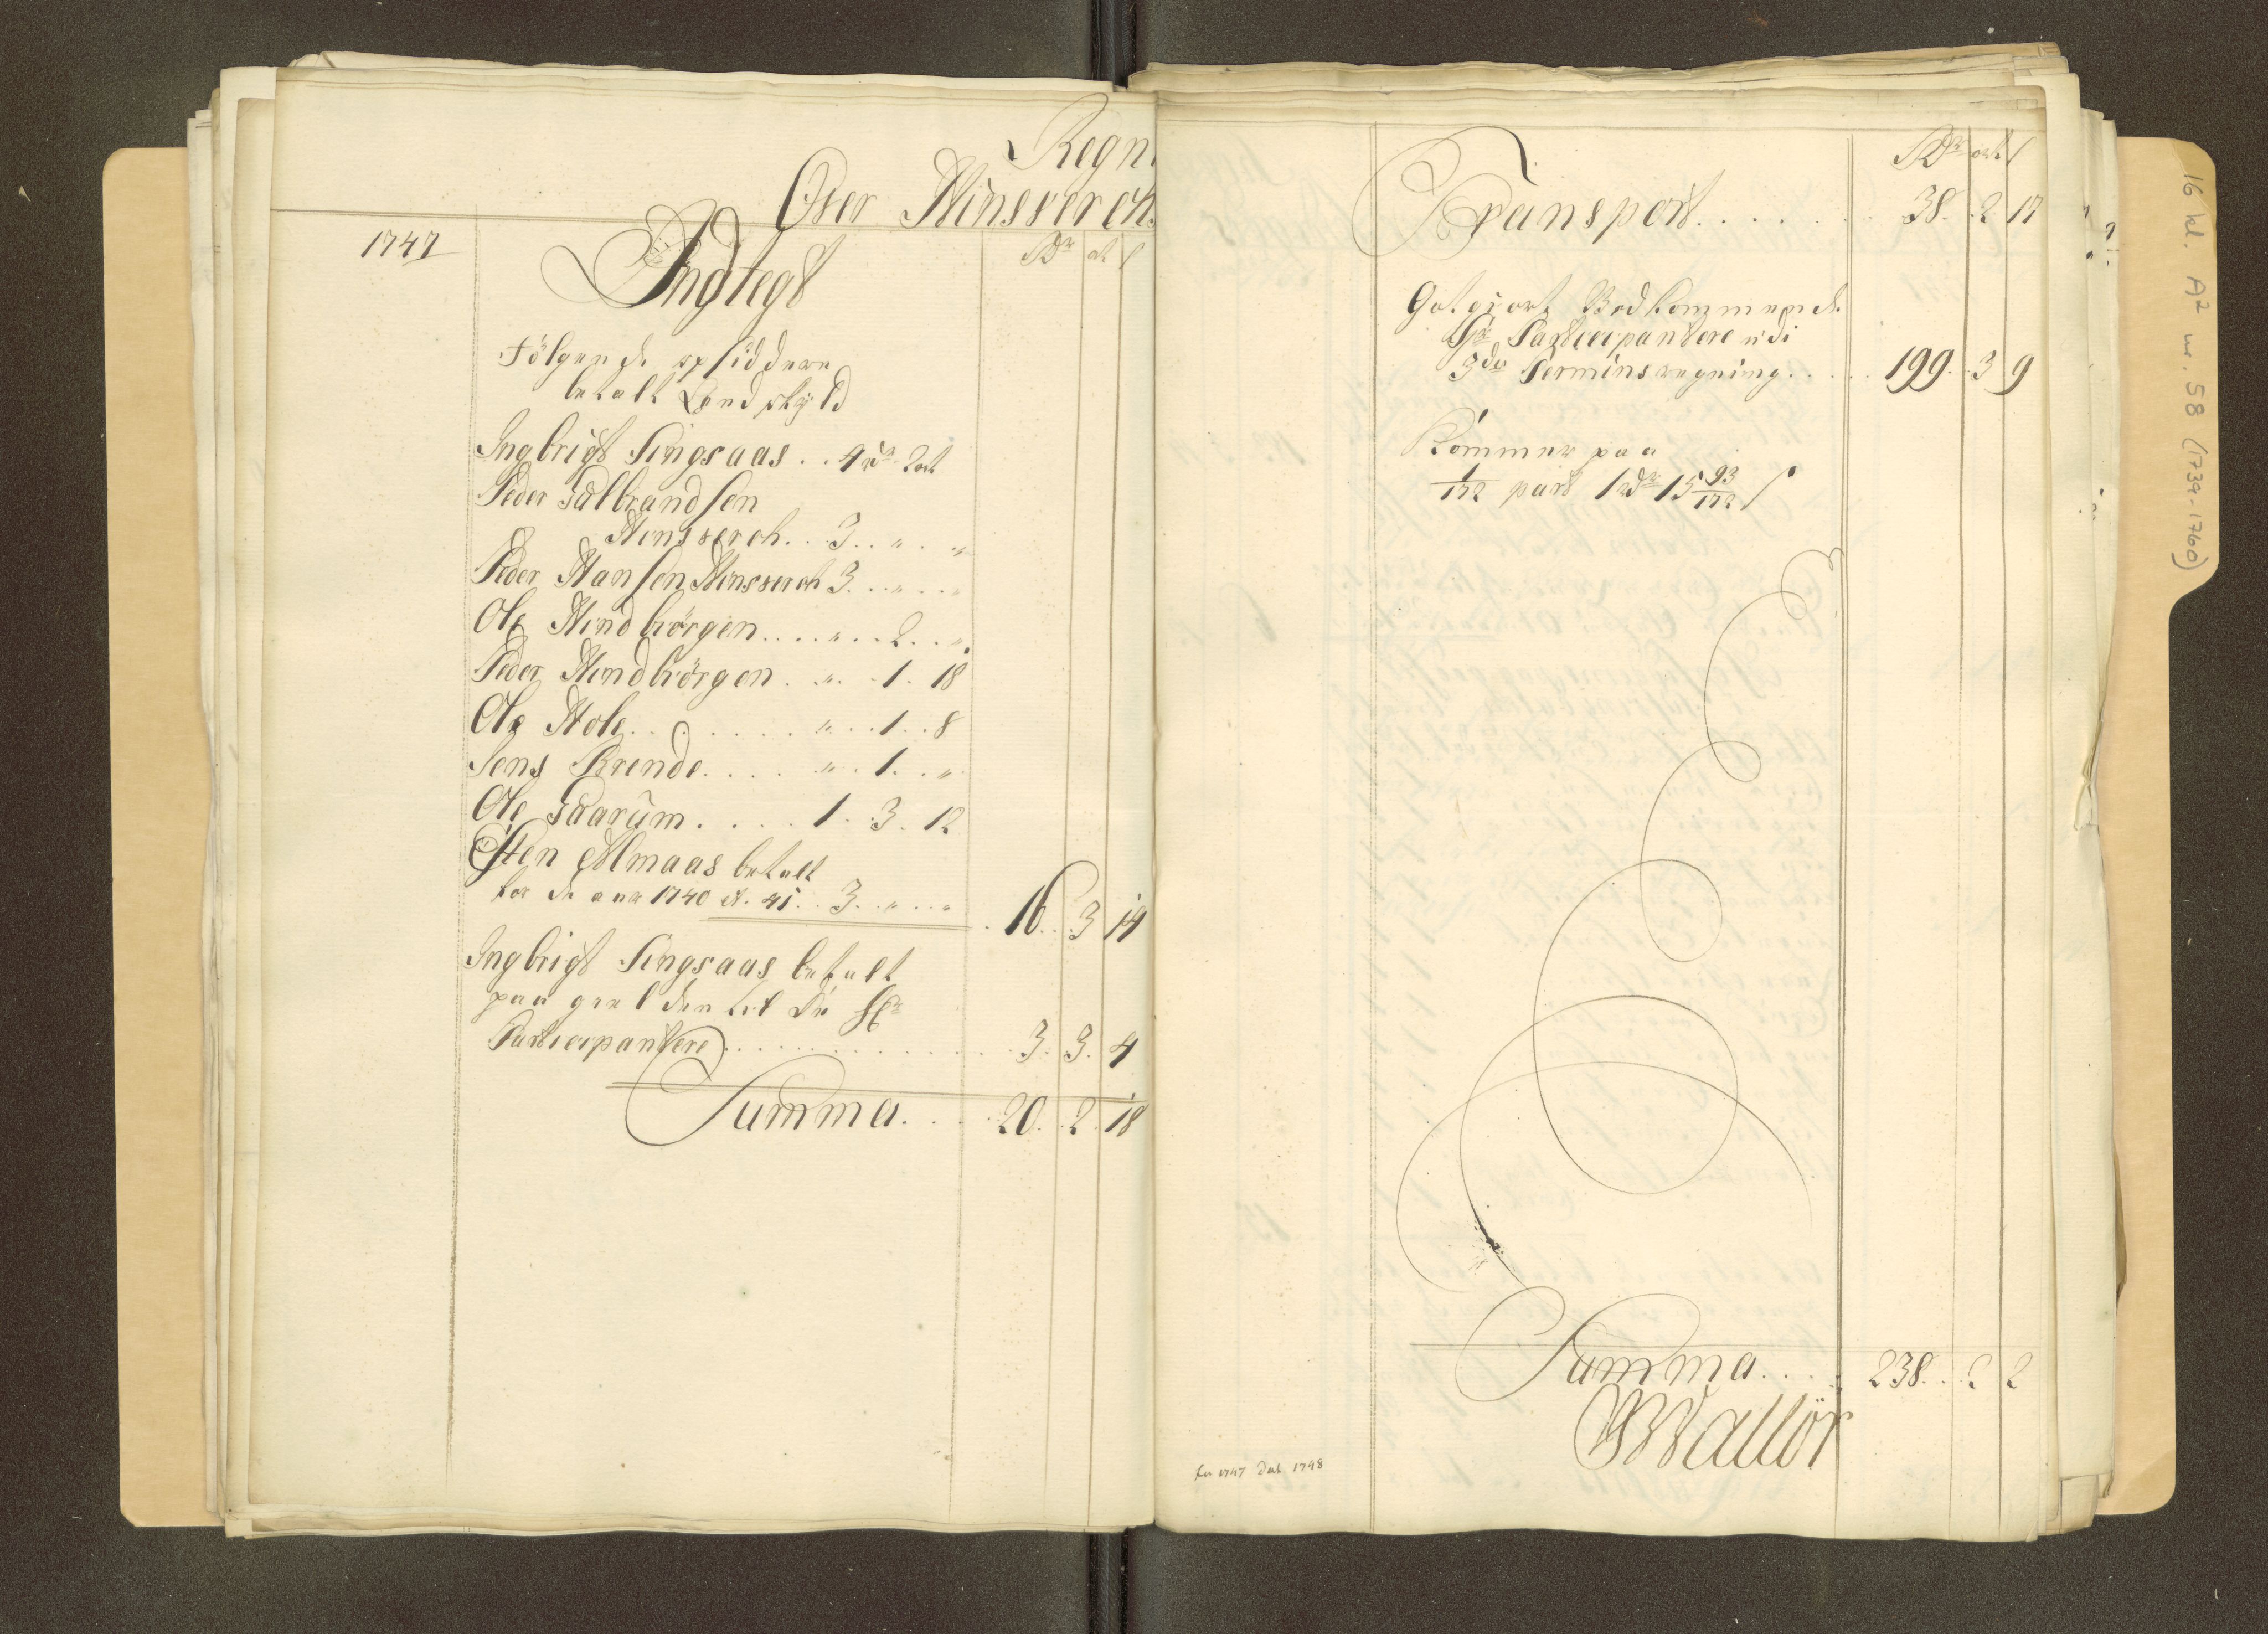 Regn
Over Hinsverch
1747
Indtegt
Rdr ort s
Fölgende opsiddere
betalt Landskyld
Ingbrigt Singsaas .. 4 rdr 2 ort
Peder Gulbrandsen
Hinsverch .. 3 .. " .. "
Peder Hansen Hinsverch 3 .. " .. "
Ole Hindbörgen .... " .. 2 .. "
Peder Hindbörgen . " . 1 . 18
Ole Hole ....... " .. 1 .. 8
Jens Brende .... " . 1 .. "
Ole Gaarum .... 1 . 3 . 12
Østen Almaas betalt
for de aar 1740 et 41 .. 3 .. " .. "
16 .. 3 14
Ingbrigt Singsaas betalt
paa gielden til de Hr
Participantere ............ 3 . 3 . 4
Summa .... 20 . 2 . 18
Rdr ort s
Transport ....... 38 .. 2 17
Gotgiort Vedkommende
Hr Participantere udi
3de Termins regning .... 199 . 3 9
Kommer paa
1/172 part 1 rdr 15 93/172 s
Summa .... 238 .. 2 2
Wallör
for 1747 Dat 1748
16 kl. A2 nr. 58 (1739-1760)